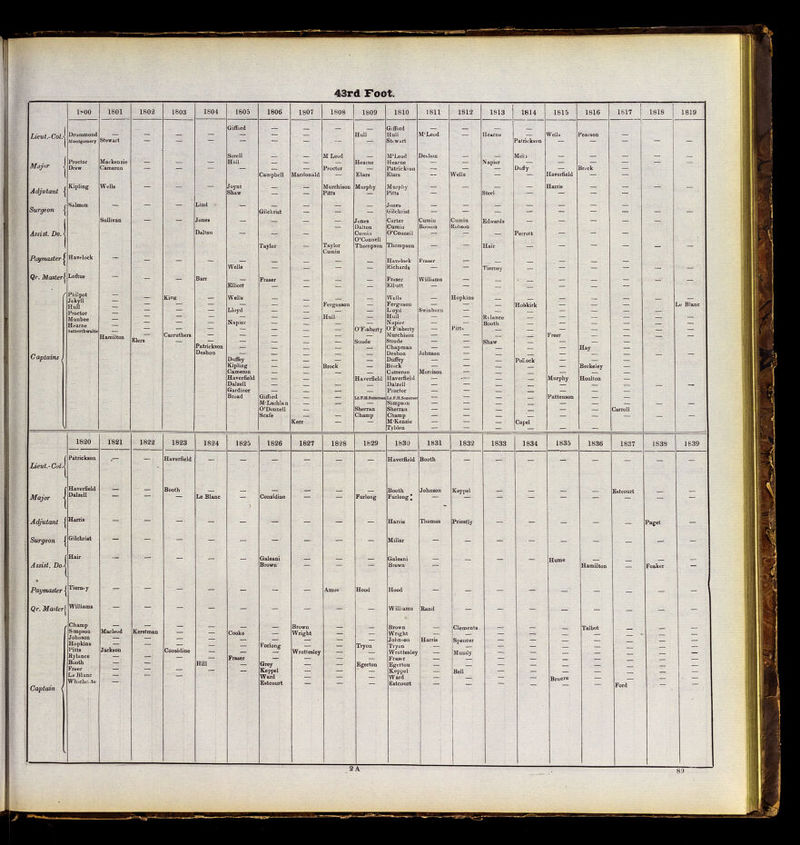 43rd Foot.
1800 1801 1802 1803 1804 1805 1806 1807 1808 1809 1810 1811 1812 1813 1814 1815 1816 1817 1818 1819
Giffied — — — — Giffied — — —
Lieut.-Col. Drummond — — — — — — — — Hull Hull M'Leod — Hearne — Wells Pearson — — —
Montgomery Stewart — — — — — — — — Stewart — — — Patrickson — — — — —
Sorell — — M Leod — M'Leod Deshon — — Mein — — — — —
Major Proctor Mackenzie — — — Hull — — — Hearne Hearne — — Napier — — — — — —
Draw Cameron — — — — — — Proctor — Patrickson — — — Duffy — Brock —
Campbell Macdonald — Elers Elers — Wells — — Haverfield — —
Adjutant Kipling Wells — — — Joynt — — Murchison Murphy Murphy — — — — Harris — — — —
Shaw — — Pitts — Pitts — — Steel — — — —
Surgeon Salmon — — — Lind — — — — — Jones — — — — — — — — —
Gilchrist — — — Gilchrist — — — — — — — — —
Assist. Do. Sullivan — — Jones — — — — Jones Carter Cumin Cumin Edwards — — — — — —
Dalton — — — — Dalton Cumin Robson Robson
Cumin O'Connell — — — Perrott — — — — —
O'Connell
Taylor — Taylor Thompson Thompson — — Hair — — — — — —
Cumin
Paymaster Havelock — — — — — — — — — Havelock Fraser — — — — — — — —
Wells — — — — Richards — — Tierney — — — — — —
Qr. Master Loftus — — — Barr — Fraser — — — Fraser Williams — — — — — — — —
Elliott — — — — Elliott
Captains Philpot — — King — Wells — — — — Wells — Hopkins — — — — — —
Jekyll — — — — — — — Fergusson — Fergusson — — — Hobkirk — — — — Le Blanc
Hull — — — — Lloyd — — — — Lloyd Swinburn — — — — — — —
Proctor — — — — — — — Hull — Hull — — Rylance — — — — —
Manbee — — — — Napier — — — — Napier — — Booth — — — — —
Hearne — — — — — — — — O'Flaherty O'Flaherty — Pitts — — — — — —
Hamilton — Carruthers — — — — — — Murchison — — — — Freer — — —
Elers — — — — — — Steele Steele — — Shaw — — — — —
Patrickson — — — — — Chapman — — — — — Hay — —
Deshon — — — — — Deshon Johnson — — — — — — —
Duffey — — — — Duffey — — — Pollock — — — —
Kipling — — Brock — Brock — — — — — Berkeley — —
Cameron — — — — Cameron Morrison — — — — — — —
Haverfield — — — Haverfield Haverfield — — — — Murphy Houlton — —
Dalzell — — — — Dalzell — — — — — — — —
Gardiner — — — — Proctor — — — — — — — —
Broad Giffied — — Lt.F.H.Somerset Lt.F.H.Somerset — — — — Patterson — — —
M'Lachlan — — — Simpson — — — — — — — —
O'Donnell — — Sherran Sherran — — — — — — Carroll — —
Scafe — — Champ Champ — — — — — — — —
Kerr — — M'Kenzie — — — Capel — — — —
Tyblen — — — — — —
1820 1821 1822 1823 1824 1825 1826 1827 1828 1829 1830 1831 1832 1833 1834 1835 1836 1837 1838 1839
Lieut.-Col. Patrickson — — Haverfield — — — — — — Haverfield Booth — — — — — — — —
Major Haverfield — — Booth — — — — — — Booth Johnson Keppel — — — — Estcourt — —
Dalzell — — — Le Blanc — Considine — — Furlong Furlong — — — — — — — — —
Adjutant Harris — — — — — — — — — Harris Thomas Priestly — — — — — Paget —
Surgeon Gilchrist — — — — — — — — — Millar — — — — — — — — —
Assist. Do. Hair — — — — — Galeani — — — Galeani — — — — Hume — — — —
Brown — — — Brown — — — — — Hamilton — Foaker —
Paymaster Tierney — — — — — — — Amos Hood Hood — — — — — — — — —
Qr. Master Williams — — — — — — — — — Williams Rand — — — — — — — —
Captain Champ — — — — — — Brown — — Brown — Clements — — — Talbot — — —
Simpson Macleod Kerstman — — Cooke — Wright — — Wright — — — — — — — — —
Johnson — — — — — — — — — Johnson Harris Spencer — — — — — — —
Hopkins — — — — — Furlong — — Tryon Tryon — — — — — — — — —
Pitts Jackson — Considine — — — Wrottesley — — Wrottesley — Mundy — — — — — — —
Rylance — — — — Fraser — — — — Fraser — — — — — — — — —
Booth — — — Hill — Grey — — Egerton Egerton — — — — — — — — —
Freer — — — — — Keppel — — — Keppel — Bell — — — — — — —
Le Blanc — — — — — Ward — — — Ward — — — — Bruere — — — —
Estcourt — — — Estcourt — — — — — — Ford — —
2 A
89